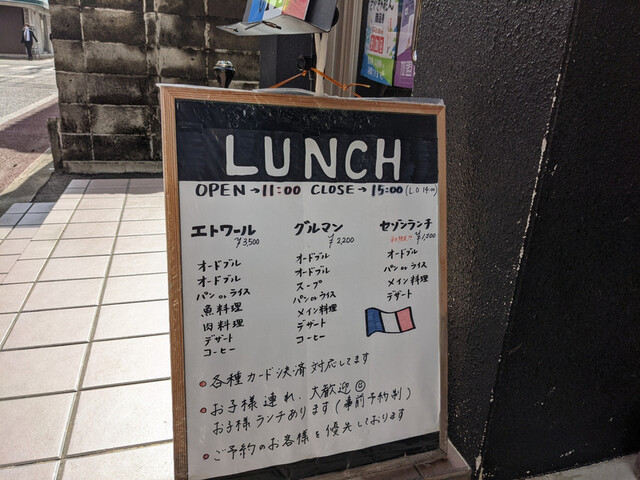 LUNCH
OPEN→11:00 CLOSE→15:00 (L.O 14:00)
エトワール
¥3,500
オードブル
オードブル
パン or ライス
魚料理
肉料理
デザート
コーヒー
グルマン
¥2,200
オードブル
オードブル
スープ
パン or ライス
メイン料理
デザート
コーヒー
セゾンランチ
オードブル
パン or ライス
メイン料理
デザート
各種カード決済対応してます
お子様連れ、大歓迎☺
お子様ランチあります(事前予約制)
ご予約のお客様を優先しております